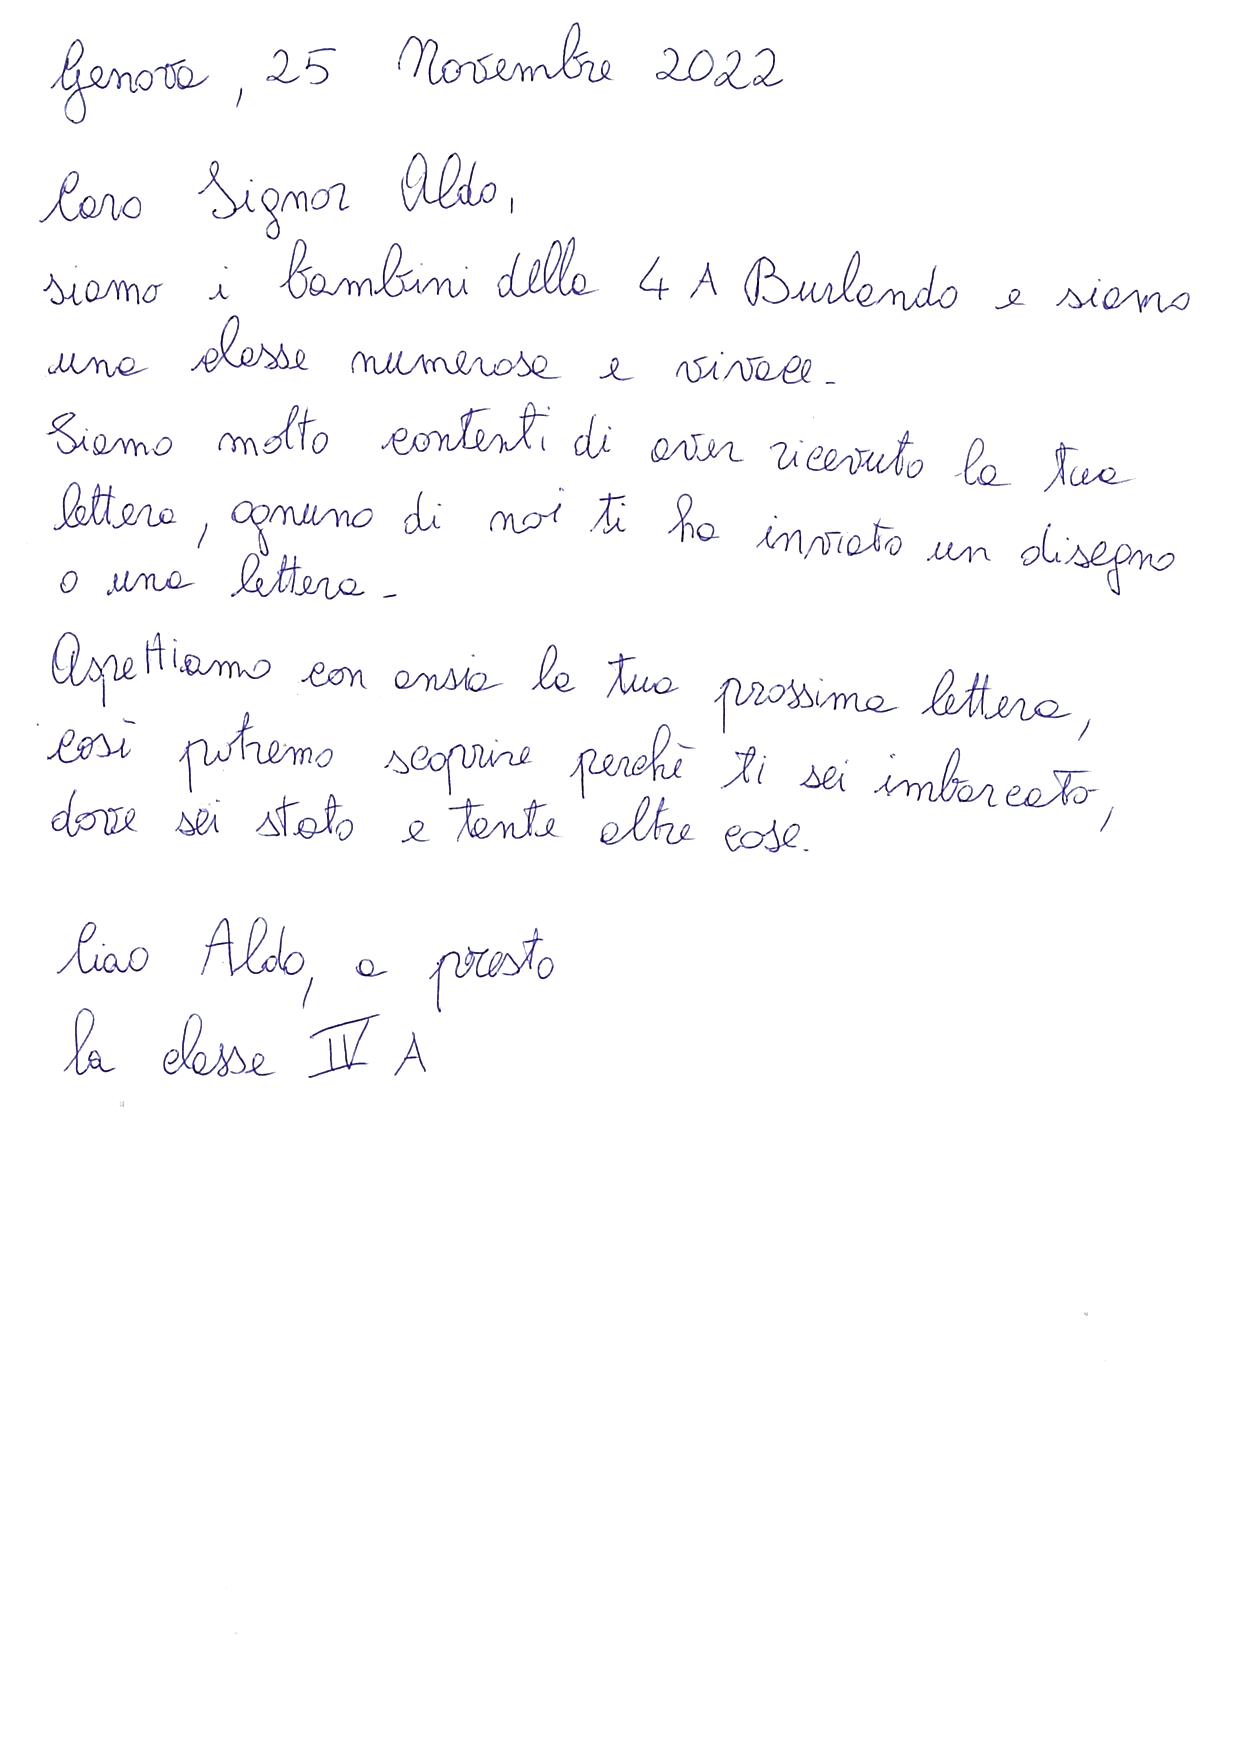 Genova, 25 Novembre 2022
Caro Signor Aldo,
siamo i bambini della 4 A Burlando e siamo
una classe numerosa e vivace.
Siamo molto contenti di aver ricevuto la tua
lettera, ognuno di noi ti ha inviato un disegno
o una lettera.
Aspettiamo con ansia la tua prossima lettera,
così potremo scoprire perchè ti sei imbarcato,
dove sei stato e tante altre cose.
Ciao Aldo, a presto
la classe IV A